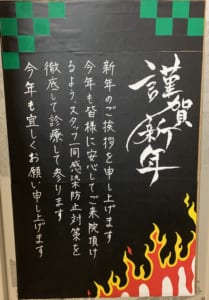 謹賀新年
新年のご挨拶を申し上げます
今年も皆様に安心してご来院頂け
るよう、スタッフ一同感染防止対策を
徹底して診療して参ります
今年も宜しくお願い申し上げます